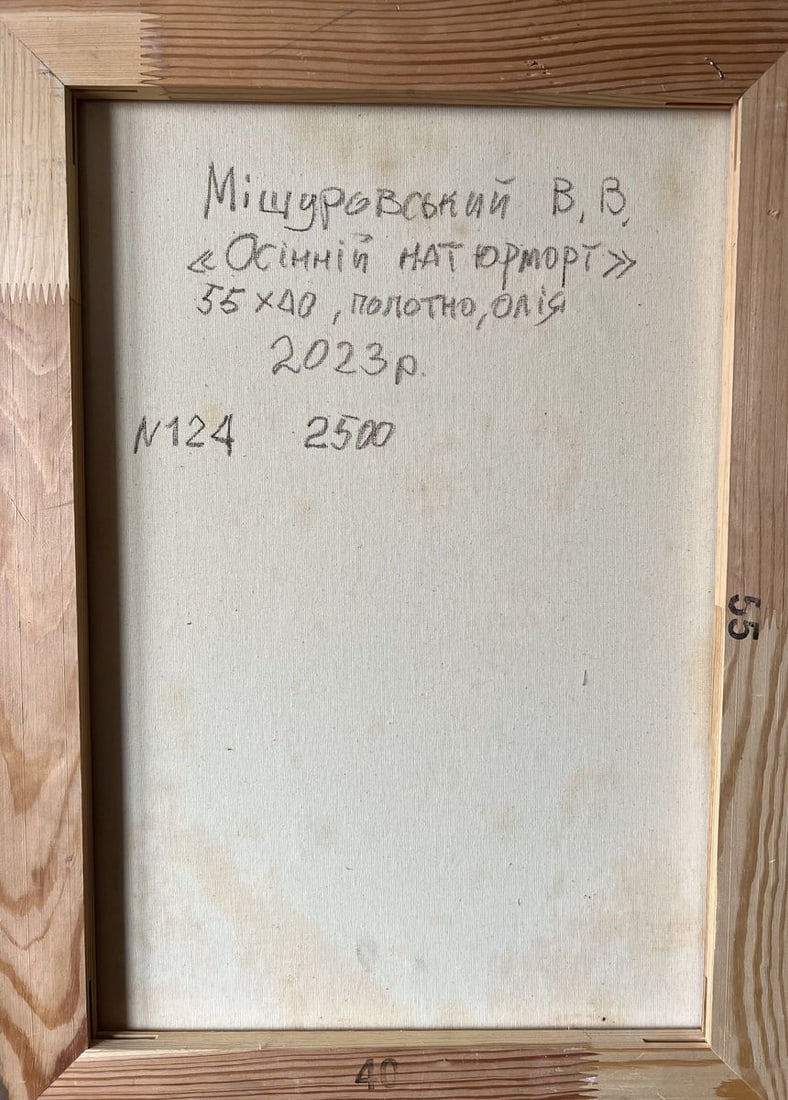 Міщуровський В, В,
«Осінній натюрморт»
55×40, полотно, олія
2023р.
N124 2500
55
40